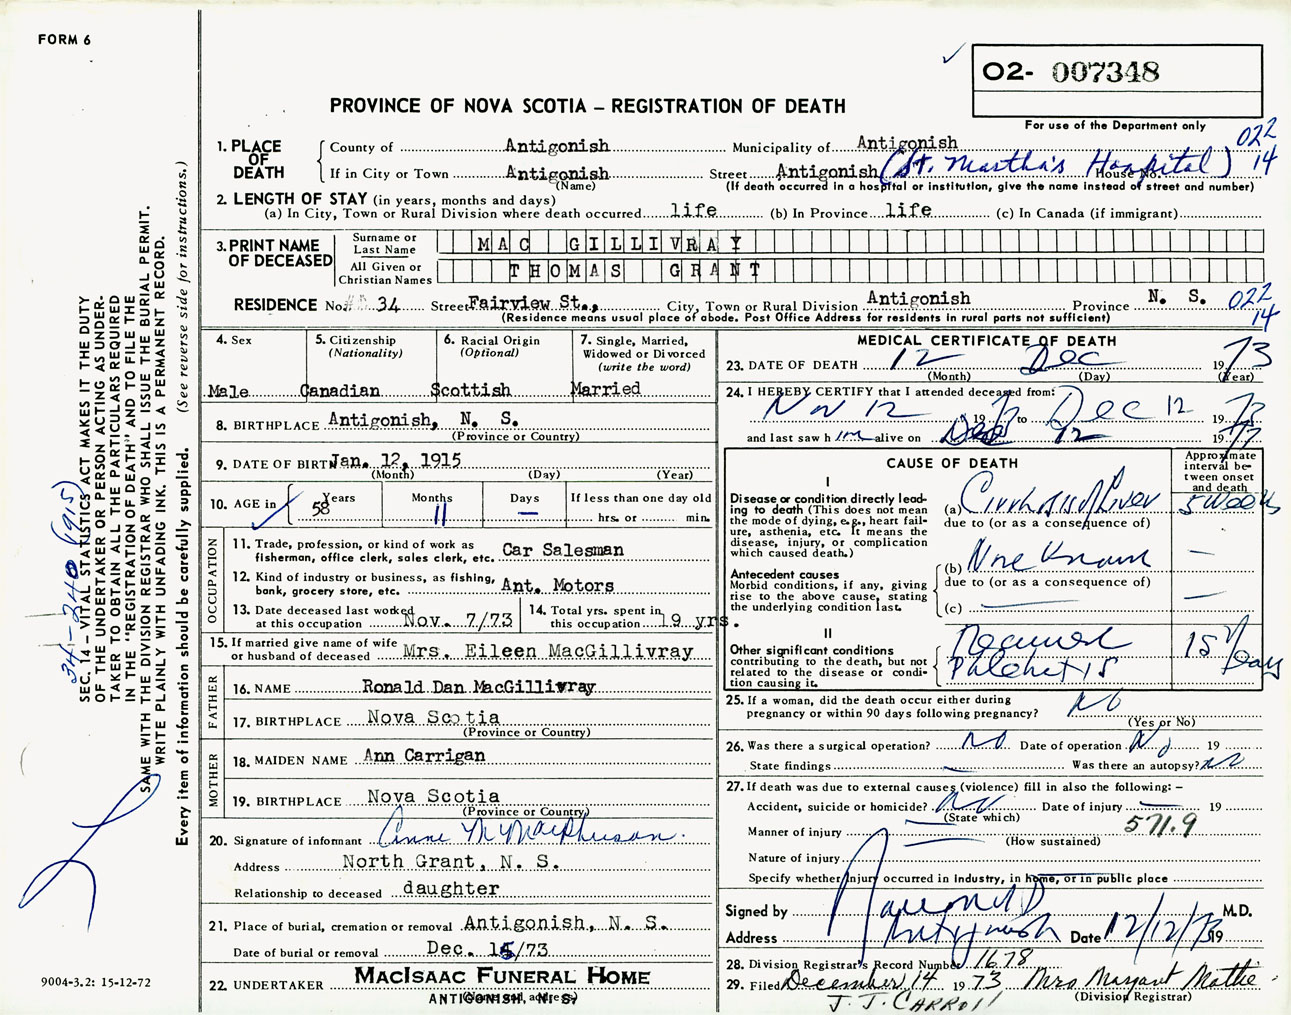 FORM 6
O2- 007348
PROVINCE OF NOVA SCOTIA – REGISTRATION OF DEATH
For use of the Department only
022
14
1. PLACE OF DEATH
County of Antigonish Municipality of Antigonish
If in City or Town Antigonish Street Antigonish (St. Martha's Hospital) House No.
(Name) (If death occurred in a hospital or institution, give the name instead of street and number)
2. LENGTH OF STAY (in years, months and days)
(a) In City, Town or Rural Division where death occurred life (b) In Province life (c) In Canada (if immigrant)
3. PRINT NAME OF DECEASED
Surname or Last Name MAC GILLIVRAY
All Given or Christian Names THOMAS GRANT
RESIDENCE No. 34 Street Fairview St., City, Town or Rural Division Antigonish Province N. S. 022 14
(Residence means usual place of abode. Post Office Address for residents in rural parts not sufficient)
4. Sex
Male
5. Citizenship
(Nationality)
Canadian
6. Racial Origin
(Optional)
Scottish
7. Single, Married,
Widowed or Divorced
(write the word)
Married
8. BIRTHPLACE Antigonish, N. S.
(Province or Country)
9. DATE OF BIRTH Jan. 12, 1915
(Month) (Day) (Year)
10. AGE in Years 58 Months 11 Days – If less than one day old
hrs. or min.
OCCUPATION
11. Trade, profession, or kind of work as
fisherman, office clerk, sales clerk, etc. Car Salesman
12. Kind of industry or business, as fishing,
bank, grocery store, etc. Ant. Motors
13. Date deceased last worked
at this occupation Nov. 7/73
14. Total yrs. spent in
this occupation 19 yrs.
15. If married give name of wife
or husband of deceased Mrs. Eileen MacGillivray
FATHER
16. NAME Ronald Dan MacGillivray
17. BIRTHPLACE Nova Scotia
(Province or Country)
MOTHER
18. MAIDEN NAME Ann Carrigan
19. BIRTHPLACE Nova Scotia
(Province or Country)
20. Signature of informant Anne M MacPherson.
Address North Grant, N. S.
Relationship to deceased daughter
21. Place of burial, cremation or removal Antigonish, N. S.
Date of burial or removal Dec. 15/73
22. UNDERTAKER MacIsaac Funeral Home
ANTIGONISH, N. S.
(Name and address)
MEDICAL CERTIFICATE OF DEATH
23. DATE OF DEATH 12 Dec 1973
(Month) (Day) (Year)
24. I HEREBY CERTIFY that I attended deceased from:
Nov 12 19 73 to Dec 12 1973
and last saw him alive on Dec 12 1973
CAUSE OF DEATH
Approximate interval between onset and death
I
Disease or condition directly leading to death (This does not mean the mode of dying, e.g., heart failure, asthenia, etc. It means the disease, injury, or complication which caused death.)
(a) Cirrhosis of Liver 5 weeks
due to (or as a consequence of)
Antecedent causes
Morbid conditions, if any, giving rise to the above cause, stating the underlying condition last.
(b) None Known –
due to (or as a consequence of)
(c) –
II
Other significant conditions contributing to the death, but not related to the disease or condition causing it.
15 Days
25. If a woman, did the death occur either during
pregnancy or within 90 days following pregnancy? No
(Yes or No)
26. Was there a surgical operation? No Date of operation No 19
State findings – Was there an autopsy? No
27. If death was due to external causes (violence) fill in also the following: –
Accident, suicide or homicide? No Date of injury – 19
(State which)
571.9
Manner of injury
(How sustained)
Nature of injury
Specify whether injury occurred in industry, in home, or in public place
Signed by M.D.
Address Antigonish Date 12/12/73 19
28. Division Registrar's Record Number 1678
29. Filed December 14 1973 Mrs Margaret Mattie
(Division Registrar)
J. J. CARROLL
341-240 (915)
SEC. 14 – VITAL STATISTICS ACT MAKES IT THE DUTY
OF THE UNDERTAKER OR PERSON ACTING AS UNDERTAKER
TO OBTAIN ALL THE PARTICULARS REQUIRED
IN THE "REGISTRATION OF DEATH" AND TO FILE THE
SAME WITH THE DIVISION REGISTRAR WHO SHALL ISSUE THE BURIAL PERMIT.
WRITE PLAINLY WITH UNFADING INK. THIS IS A PERMANENT RECORD.
Every item of information should be carefully supplied. (See reverse side for instructions.)
9004-3.2: 15-12-72